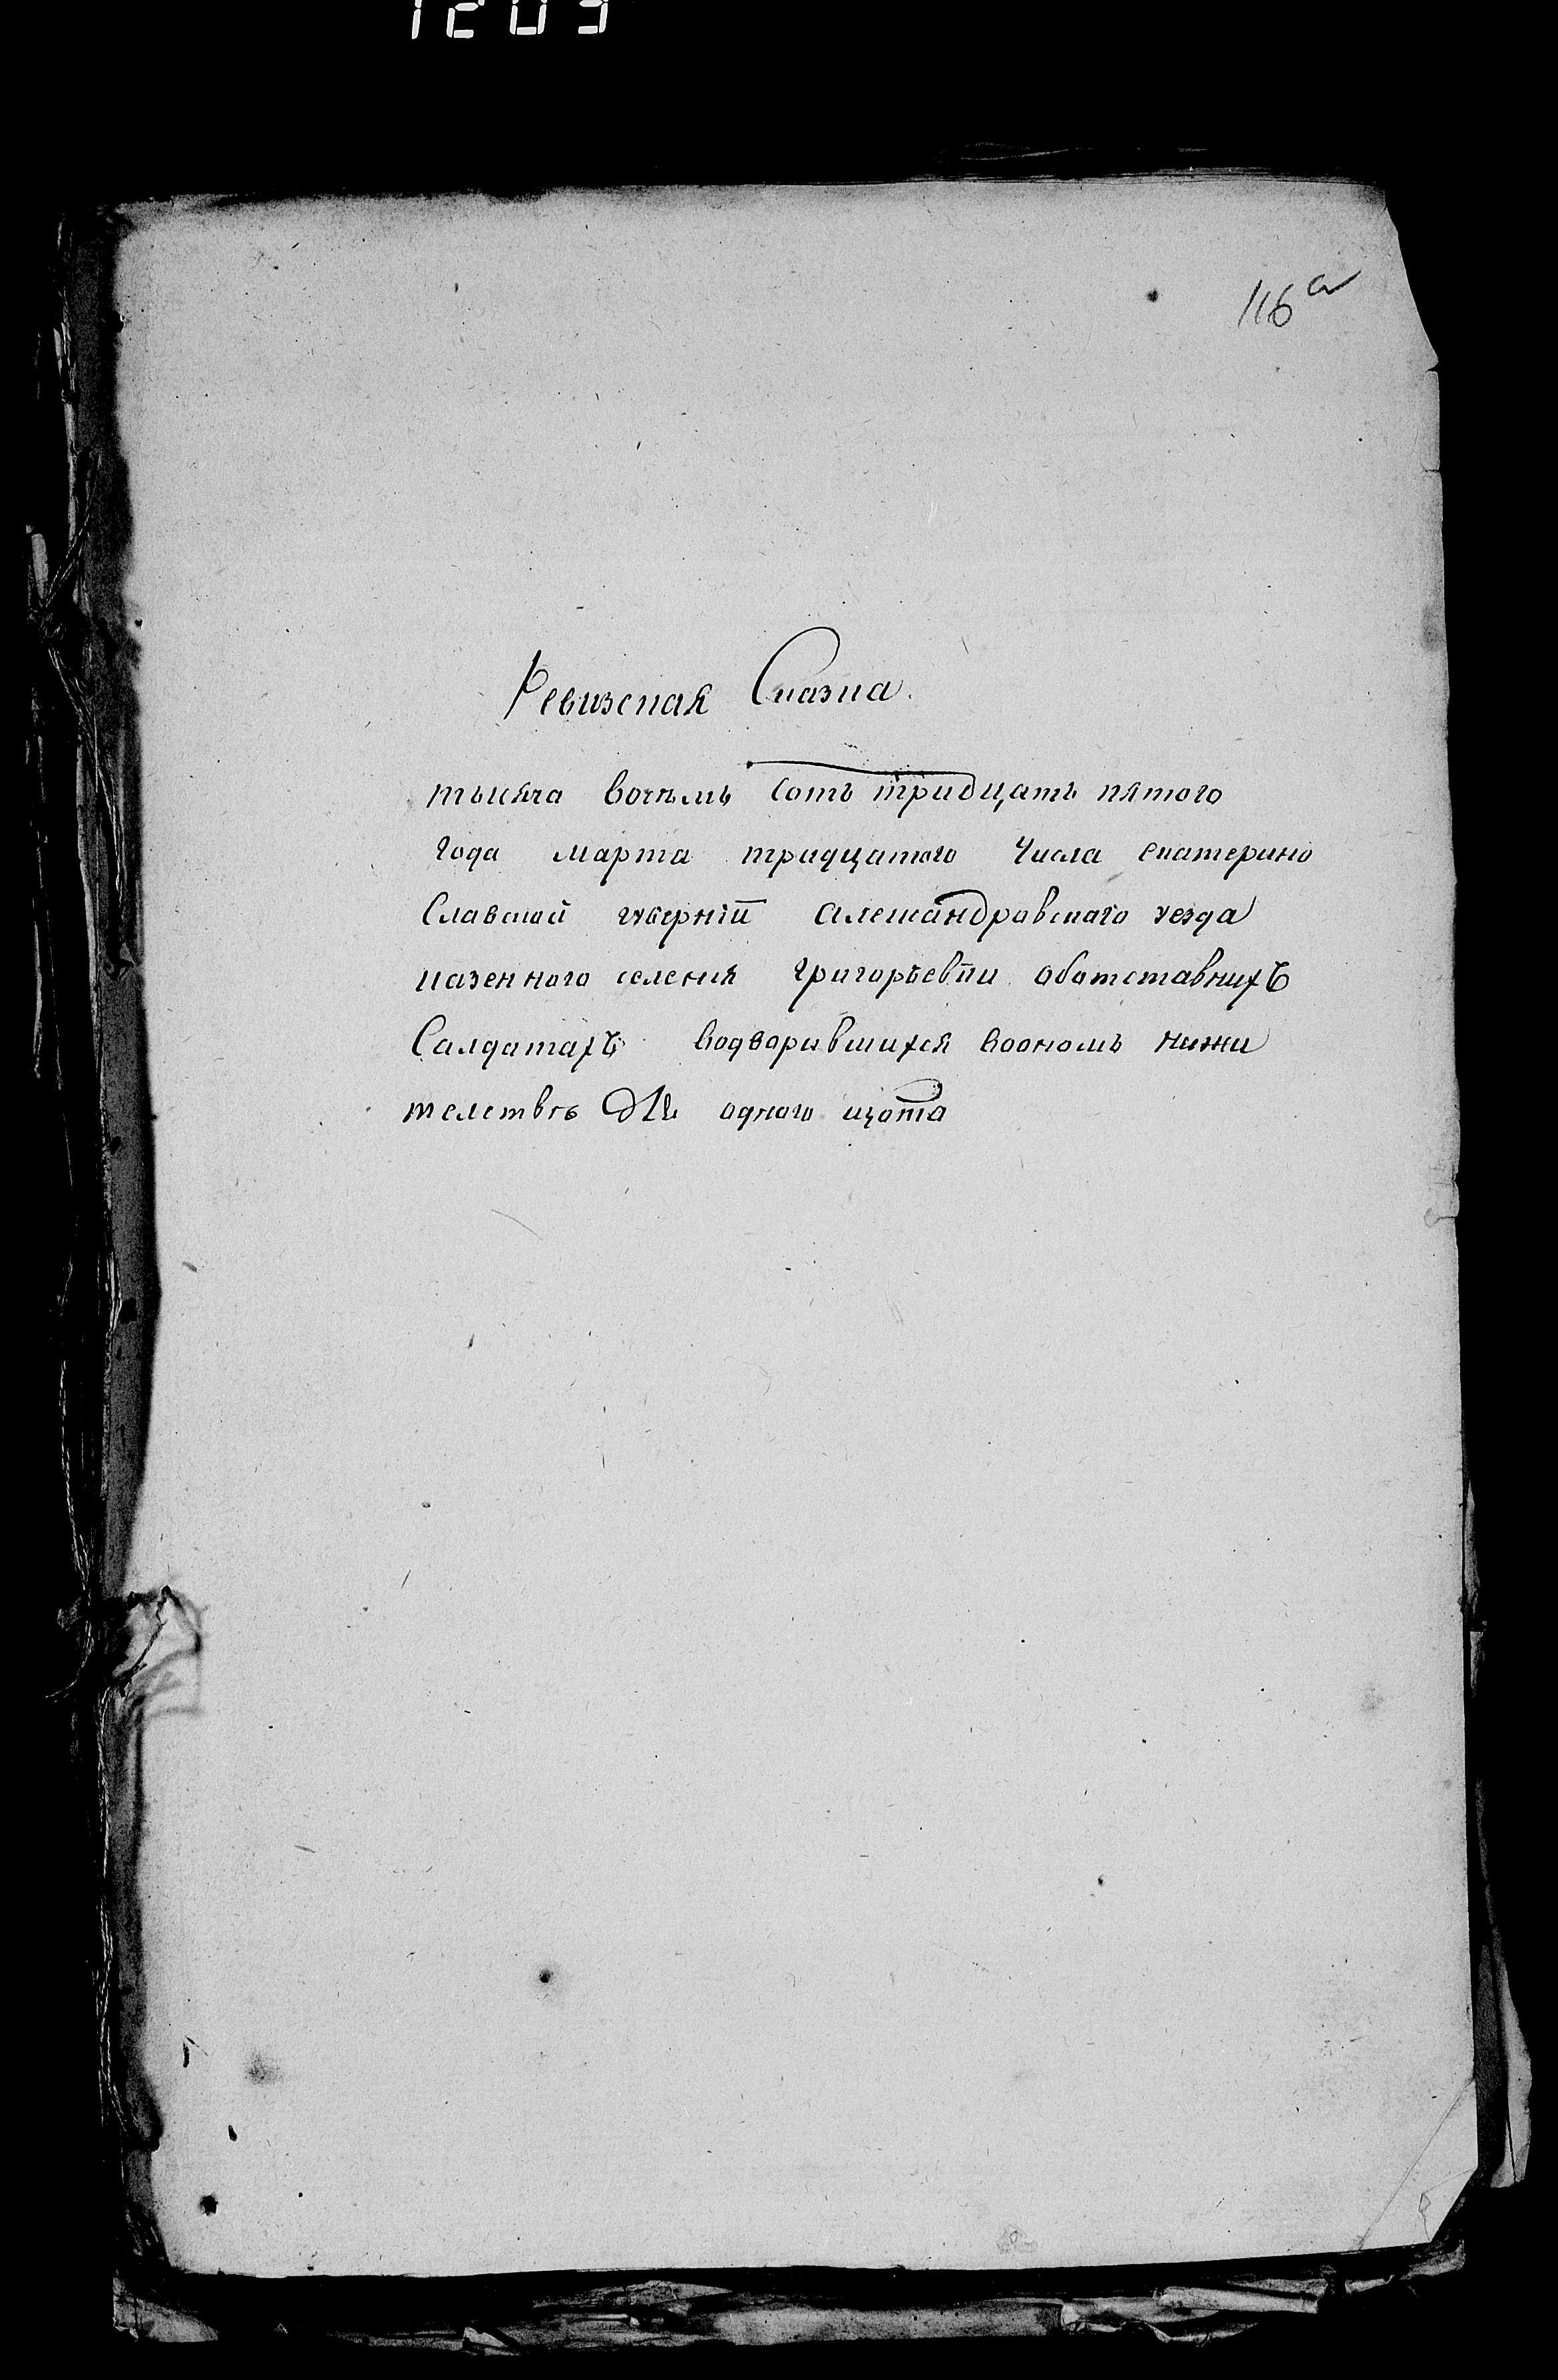 1203
116а
Ревизская Сказка.
тысяча восемь сотъ тридцать пятого
года марта тридцатого Числа екатерино
Славской губерніи Александровскаго уезда
казенного селения григорьевки оботставнихъ
Салдатахъ водворившихся воономъ нажи
телствъ для одного щота